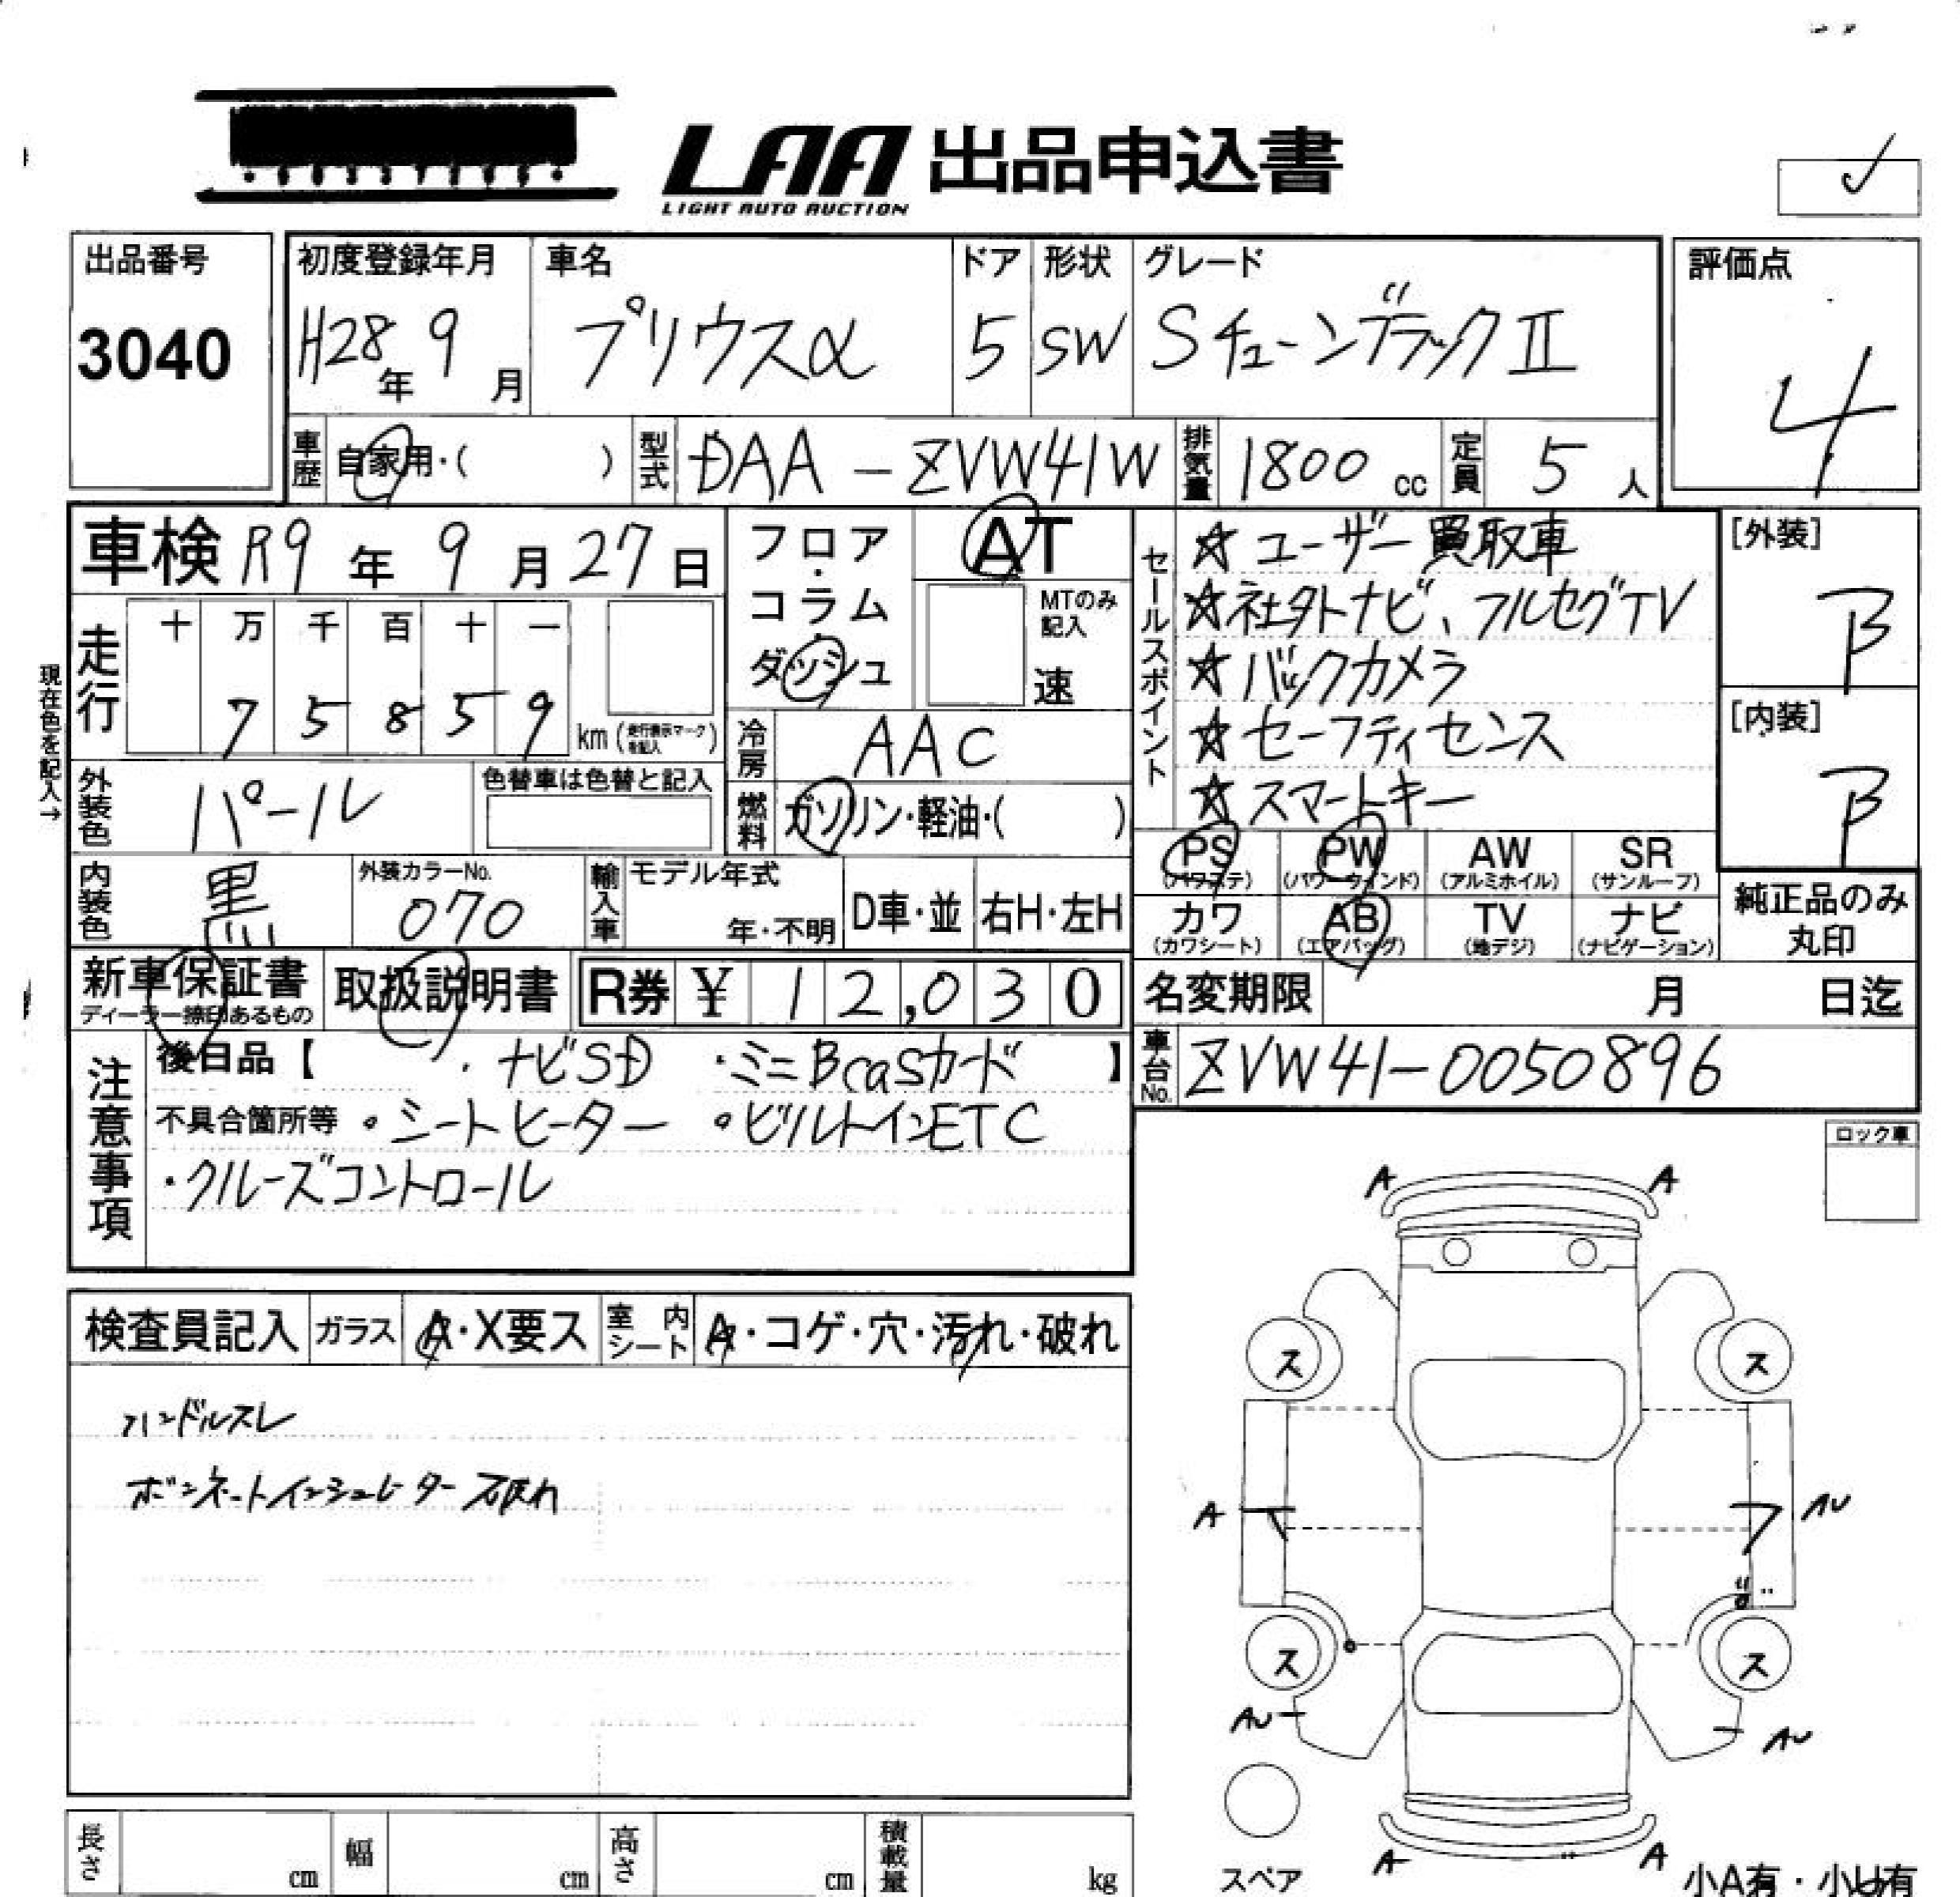 LAA 出品申込書
LIGHT AUTO AUCTION
出品番号
3040
初度登録年月
H28年 9月
車名
プリウスα
ドア
5
形状
SW
グレード
SチューンブラックⅡ
評価点
4
車歴 自家用・( )
型式 DAA-ZVW41W
排気量 1800 cc
定員 5 人
車検 R9年 9月 27日
フロア・コラム・ダッシュ
AT
MTのみ記入
速
走行
十 万 千 百 十 一
7 5 8 5 9 km (走行表示マークを記入)
現在色を記入→
冷房 AAC
外装色 パール
色替車は色替と記入
燃料 ガソリン・軽油・( )
内装色 黒
外装カラーNo.
070
輸入車 モデル年式
年・不明
D車・並 右H・左H
セールスポイント
☆ユーザー買取車
☆社外ナビ、フルセグTV
☆バックカメラ
☆セーフティセンス
☆スマートキー
[外装]
B
[内装]
B
PS (パワステ) PW (パワーウィンド) AW (アルミホイル) SR (サンルーフ)
カワ (カワシート) AB (エアバッグ) TV (地デジ) ナビ (ナビゲーション)
純正品のみ丸印
新車保証書
ディーラー捺印あるもの
取扱説明書
R券 ¥ 12,030
名変期限 月 日迄
車台No. ZVW41-0050896
注意事項
後日品【 ・ナビSD ・ミニBcasカード 】
不具合箇所等 ・シートヒーター ・ビルトインETC
・クルーズコントロール
ロック車
検査員記入 ガラス A・X要ス 室内シート A・コゲ・穴・汚れ・破れ
ハンドルスレ
ボンネットインシュレーター破れ
A A
ス ス
A AU
ス ス
AU AU
A A
スペア
小A有・小U有
長さ cm 幅 cm 高さ cm 積載量 kg